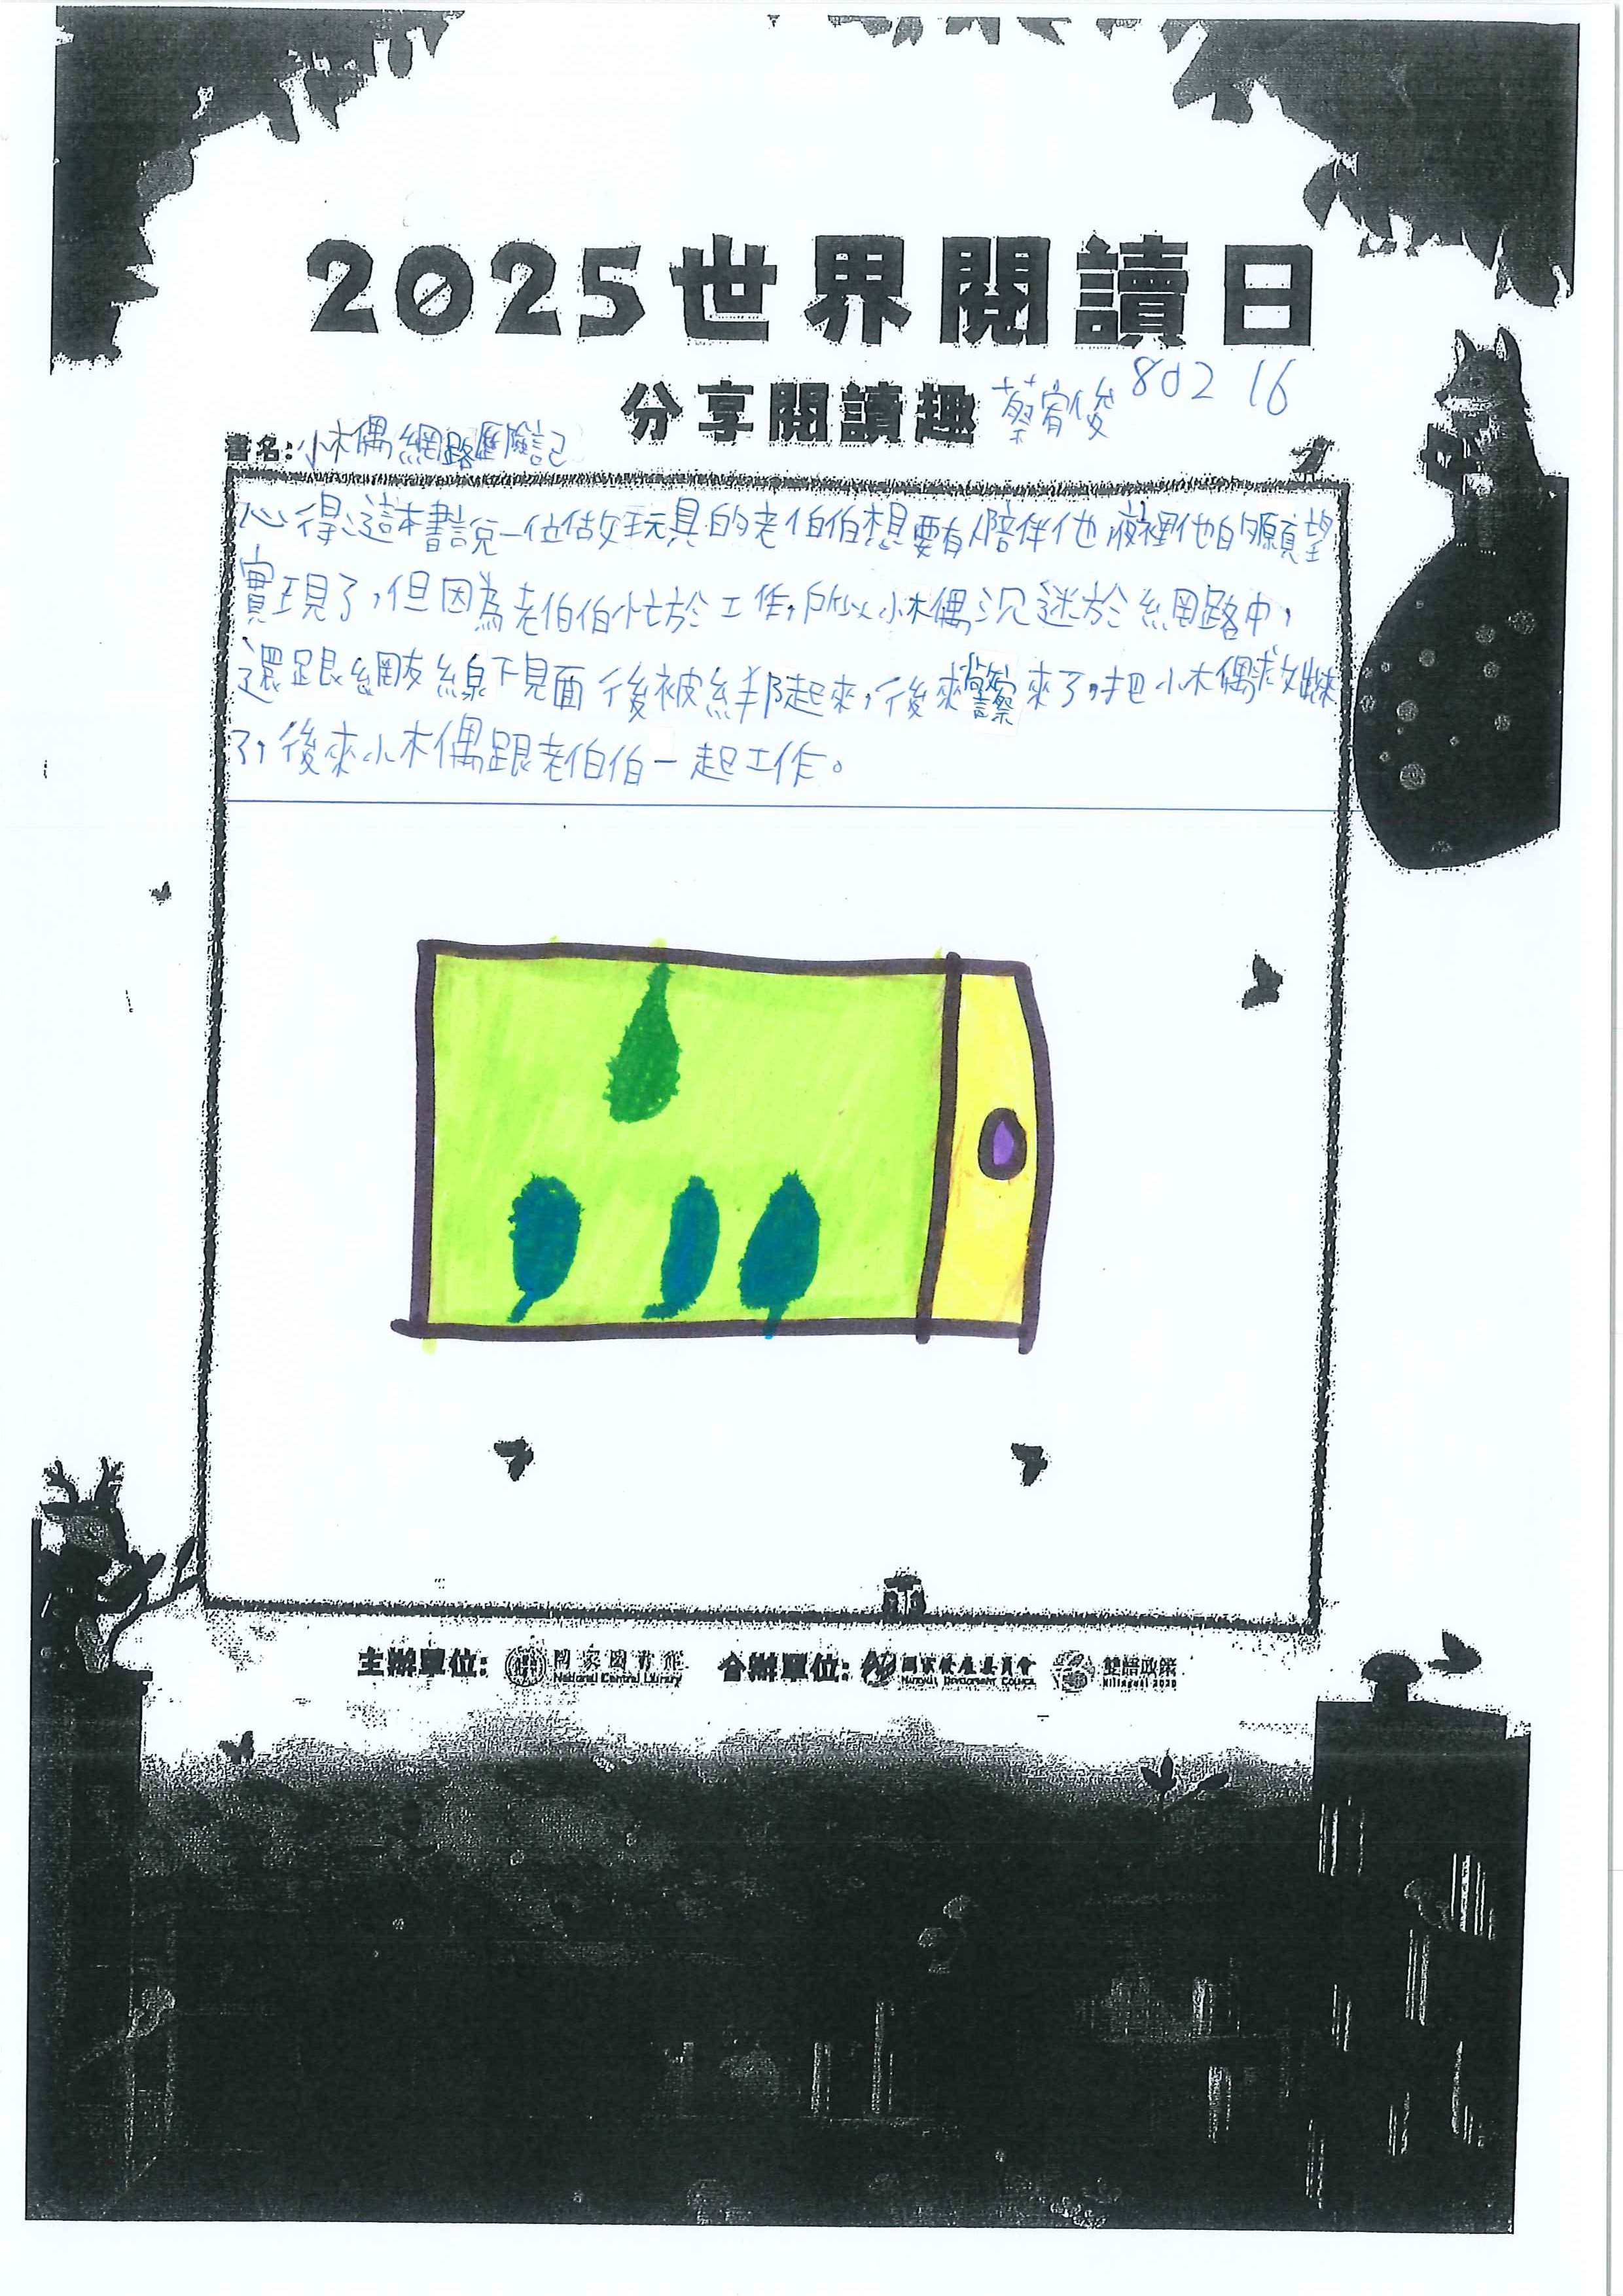 2025世界閱讀日
分享閱讀趣 蔡宥俊 802 16
書名:小木偶網路歷險記
心得:這本書說一位做玩具的老伯伯想要有人陪伴他夜裡他的願望
實現了,但因為老伯伯忙於工作,所以小木偶沉迷於網路中,
還跟網友線下見面後被綁起來,後來警察來了,把小木偶救出來
了,後來小木偶跟老伯伯一起工作。
主辦單位: 國家圖書館 National Central Library 合辦單位: 國家發展委員會 National Development Council 雙語政策 Bilingual 2030